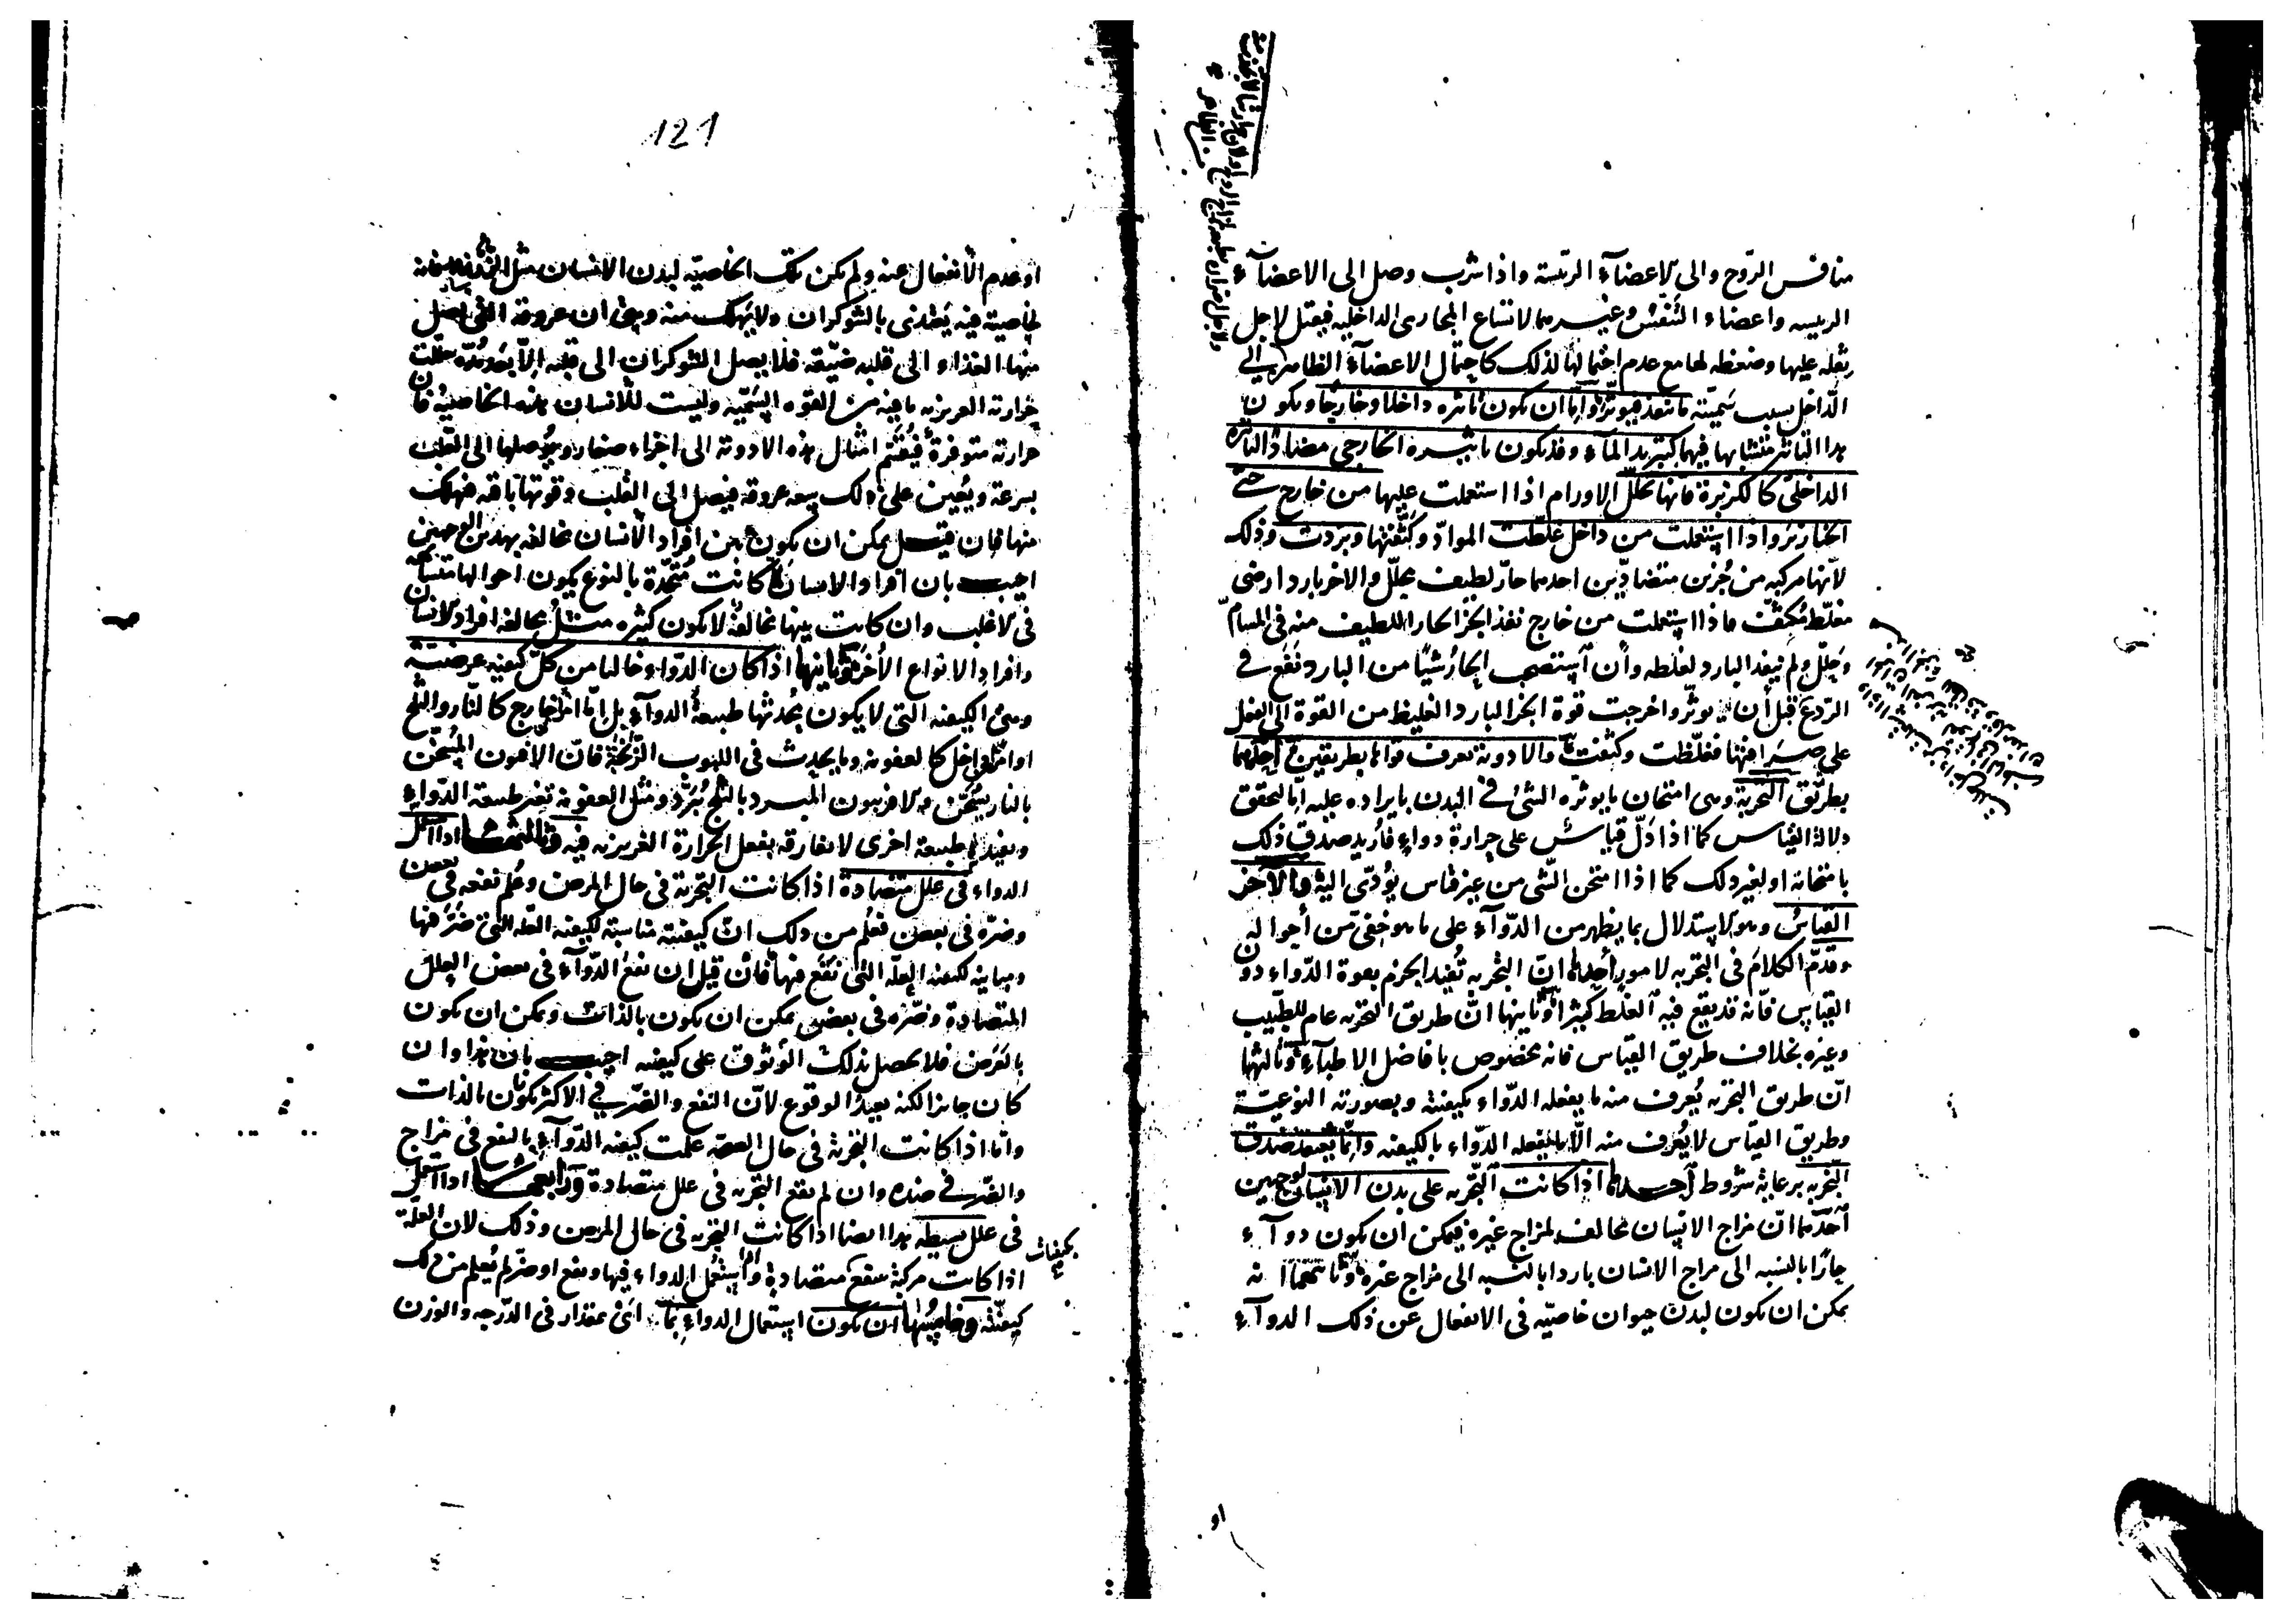 منافس الروح والى الاعضآء الرئسة واذا شرب وصل الى الاعضآء
الريسه واعضاء التنفس وغيرهما لاتساع المجارى الداخليه فيقتل لاجل
ثقله عليها وضغطه لها مع عدم احتمالها لذلك كاحتمال الاعضآء الظاهر
الداخل بسبب سميته ما ينفذ هيوثر واما ان يكون تاثره داخلا وخارجا ويكون
هذا التاثر متشابها فيهما كتبريد المآء وقد يكون تاثيره الخارجى مضاد التاثره
الداخلى كالكزبرة فانها تحلل الاورام اذا استعملت عليها من خارج حتى
الخنازير واذا استعملت من داخل غلظت المواد وكثفتها وبردت وذلك
لانها مركبه من جزين متضادين احدهما حار لطيف محلل والاخر بارد ارضى
مغلظ مكثف فاذا استعملت من خارج نفذ الجز الحار اللطيف منه فى المسام
وحلل ولم ينفذ البارد لغلظه وان استصحب الحار شيا من البارد نفع فى
الردع قبل أن يوثر واخرجت قوة الجز البارد الغليظ من القوة الى الفعل
على فغلظت وكثفت والادوية تعرف قواها بطريقين احدهما
بطريق التجربة وهى امتحان ما يوثره الشئ فى البدن بايراده عليه اما لتحقق
دلالة القياس كما اذا دل قياس على حرارة دواء فاريد صدق ذلك
بامتحانه او لغير ذلك كما اذا امتحن الشى من غير قياس يؤدى اليه والآخر
القياس وهو الاستدلال بما يظهر من الدوآء على ما هو خفى من أحواله
وقدم الكلام فى التجربه لامور أحدها ان التجربه تفيد الجزم بقوة الدواء دون
القياس فانه قد يقع فيه الغلط كثيرا وثانيها ان طريق التجربه عام للطبيب
وغيره بخلاف طريق القياس فانه مخصوص بافاضل الاطبآء وثالثها
ان طريق التجربه يُعرف منه ما يفعله الدواء بكيفيته وبصورته النوعية
وطريق القياس لا يُعرف منه الا ما يفعله الدواء بالكيفيه وانما يعتمد صدق
التجربه برعاية شروط أحدها اذا كانت التجربه على بدن الانسان لوجهين
أحدهما ان مزاج الانسان مخالف لمزاج غيره فيمكن ان يكون دوآء
حارا بالنسبه الى مزاج الانسان باردا بالنسبه الى مزاج غيره وثانيهما انه
يمكن ان يكون لبدن حيوان خاصيه فى الانفعال عن ذلك الدوآء
او
121
او عدم الانفعال عنه ولم يكن تلك الخاصيه لبدن الانسان مثل
لخاصية فيه يغتذى بالشوكران ولا يهلك منه وهى ان عروقه التى يصل
منها الغذاء الى قلبه ضيقه فلا يصل الشوكران الى قلبه الا بعد مدة حللت
حرارته الغريزيه ما فيه من القوه السميه وليست للانسان هذه الخاصيه فان
حرارته متوفرة فيقسم امثال هذه الادوية الى اجزاء صغار ويوصلها الى القلب
بسرعة ويعين على ذلك سعه عروقه فيصل الى القلب وقوتها باقيه فيهلك
منها فان قيل يمكن ان يكون بين افراد الانسان مخالفه بهذين الوجهين
اجيب بان افراد الانسان لما كانت متحدة بالنوع يكون احوالها متشابه
فى الاغلب وان كانت بينها مخالفة لا يكون كثيره مثل مخالفه افراد الانسان
وافراد الانواع الأخر وثانيها اذا كان الدواء خاليا من كل كيفيه عرضية
وهى الكيفيه التى لا يكون يحدثها طبيعة الدوآء بل اما امر خارج كالنار والثلج
او امر داخل كالعفونه وما يحدث فى اللبوب الزنخة فان الافيون المسخن
بالنار يسخن والافربيون المبرد بالثلج يبرد ومثل العفونه تغير طبيعة الدواء
وتفيد طبيعة اخرى لا تفارقه بفعل الحرارة الغريزيه فيه وثالثها اذا استعمل
الدواء فى علل متضادة اذا كانت التجربة فى حال المرض وعلم نفعه فى بعض
وضره فى بعض فعلم من ذلك ان كيفيته مناسبة لكيفيه العله التى ضر فيها
ومباينه لكيفيه العله التى نفع فيها فان قيل ان نفع الدوآء فى بعض العلل
المتضادة وضره فى بعض يمكن ان يكون بالذات ويمكن ان يكون
بالعرض فلا يحصل بذلك الوثوق على كيفيه اجيب بان هذا وان
كان جايزا لكنه بعيد الوقوع لان النفع والضر فى الاكثر يكون بالذات
واما اذا كانت التجربة فى حال الصحه علمت كيفيه الدوآء بالنفع فى مزاج
والضر فى ضده وان لم يقع التجربه فى علل متضادة ورابعها اذا استعمل
فى علل بسيطه هذا ايضا اذا كانت التجربه فى حال المرض وذلك لان العلة
اذا كانت مركبة متضادة واستعمل الدواء فيها ونفع او ضر لم يعلم من ذلك
بكيفيات
كيفيته وخامسها ان يكون استعمال الدواء بمقدار فى الدرجه والوزن